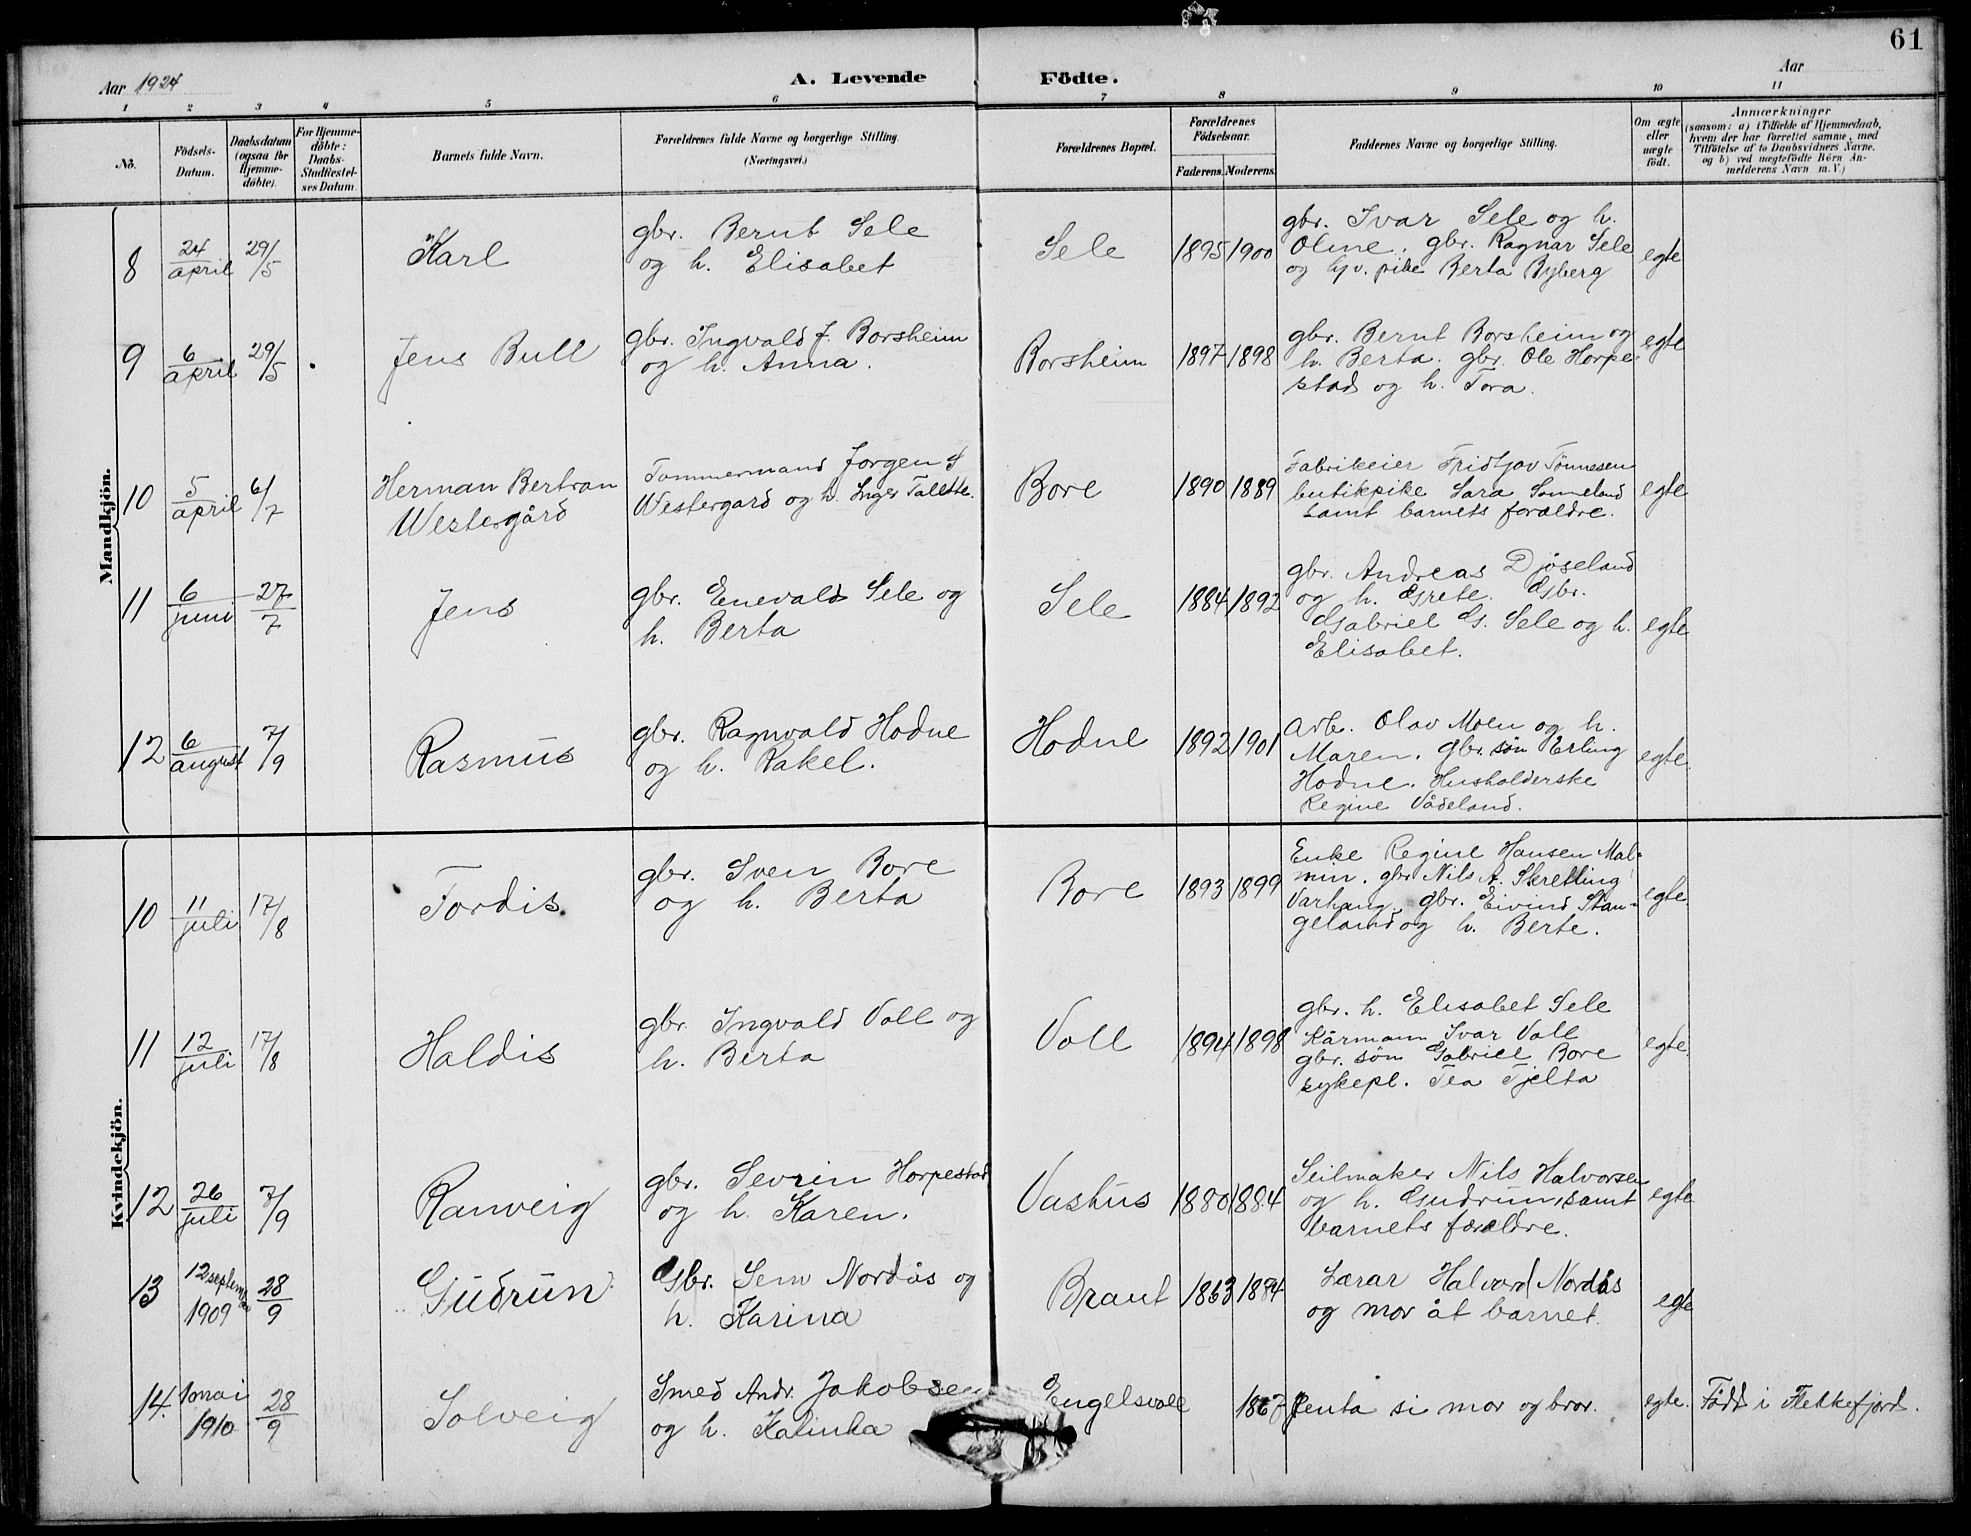 61
Aar 1924
A. Levende Födte.
Aar
1 2 3 4 5 6 7 8 9 10 11
No.
Födsels-Datum.
Daabsdatum (ogsaa for Hjemme-döbte).
For Hjemme-döbte: Daabs-Stadfæstel-ses Datum.
Barnets fulde Navn.
Forældrenes fulde Navne og borgerlige Stilling. (Næringsvei.)
Forældrenes Bopæl.
Forældrenes Födselsaar.
Faderens. Moderens.
Faddernes Navne og borgerlige Stilling.
Om ægte eller uægte födt.
Anmærkninger
(saasom: a) i Tilfælde af Hjemmedaab, hvem der har forrettet samme, med Tilföielse af to Daabsvidners Navne. og b) ved uægtefödte Börn An-melderens Navn m. V.)
Mandkjön.
8 24/april 29/5 Karl
gbr. Bernt Sele
og h. Elisabet
Sele 1895 1900
gbr. Ivar Sele og h.
Oline. gbr. Ragnar Sele
og gv. pike Berta Byberg
egte
9 6/april 29/5 Jens Bull
gbr. Ingvald J. Borsheim
og h. Anna.
Borsheim 1897 1898
gbr. Bernt Borsheim og
h. Berta. gbr. Ole Horpe-
stad og h. Tora.
egte
10 5/april 6/7
Herman Bertran
Westergård
Tømmermand Jørgen
Westergard og h. Inger Talette.
Bore 1890 1889
Fabrikeier Fridtjov Tönnesen
butikpike Sara Sømeland
samt barnets forældre.
egte
11 6/juni 27/7 Jens
gbr. Enevald Sele og
h. Berta
Sele 1884 1892
gbr. Andreas Djöseland
og h. Grete. Gbr.
Gabriel G. Sele og h.
Elisabet.
egte
12 6/august 7/9 Rasmus
gbr. Ragnvald Hodne
og h. Rakel.
Hodne 1892 1901
Arb. Olav Moen og h.
Maren. gbr. søn Erling
Hodne. Husholderske
Regine Vådeland.
egte.
Kvindekjön.
10 11/juli 17/8 Tordis.
gbr. Sven Bore
og h. Berta
Bore 1893 1899
Enke Regine Hansen Mal-
min. gbr Nils A. Skretting
Varhaug. gbr. Eivind Stan-
geland og h. Berte.
egte
11 12/juli 17/8 Haldis
gbr. Ingvald Voll og
h. Berta
Voll 1894 1898
gbr. h. Elisabet Sele
Kårmann Ivar Voll
gbr. søn Gabriel Bore
sykepl. Tea Tjelta
egte.
12 26/juli 7/9 Ranveig
gbr. Sevrin Horpestad
og h. Karen.
Vashus 1880 1884
Seilmaker Nils Halvorsen
og h. Gudrun, samt
barnets forældre.
egte
13 12 september 1909 28/9 Gudrun
Gbr. Sem Nordås og
h. Karina
Braut 1863 1884
Lærar Halvard Nordås
og mor åt barnet.
egte
14. 1 mai 1910 28/9 Solveig
Smed Andr. Jakobsen
og h. Kalinka
Engelsvoll 1867
Jenta si mor og bror.
egte. Född i Flekkefjord.